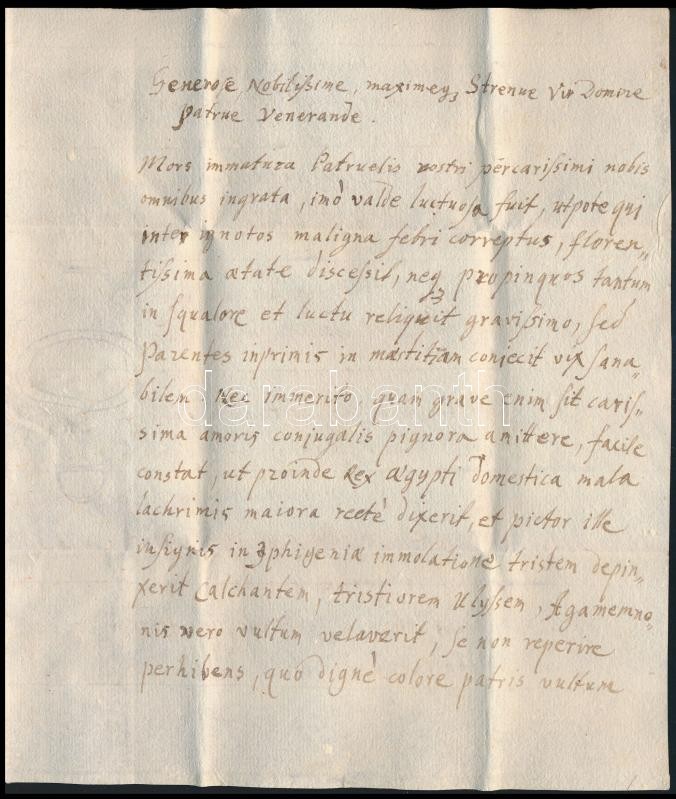 Generose, Nobilissime, maximeq3 Strenue Vir Domine
Patrue Venerande.
Mors immatura Patruelis nostri percarissimi nobis
omnibus ingrata, imò valde luctuosa fuit, utpote qui
inter ignotos maligna febri correptus, floren=
tissima ætate discessit, neq3 propinquos tantum
in squalore et luctu reliquit gravissimo, sed
Parentes inprimis in mæstitiam coniecit vix sana=
bilem Nec immerito quam grave enim sit caris=
sima amoris conjugalis pignora amittere, facile
constat, ut proinde Rex ægypti domestica mala
lachrimis maiora rectè dixerit, et pictor ille
insignis in Iphigeniæ immolatione tristem depin=
xerit Calchantem, tristiorem Ulyssem, Agamemno=
nis vero vultum velaverit, se non reperire
perhibens, quo dignè colore patris vultum
darabanth